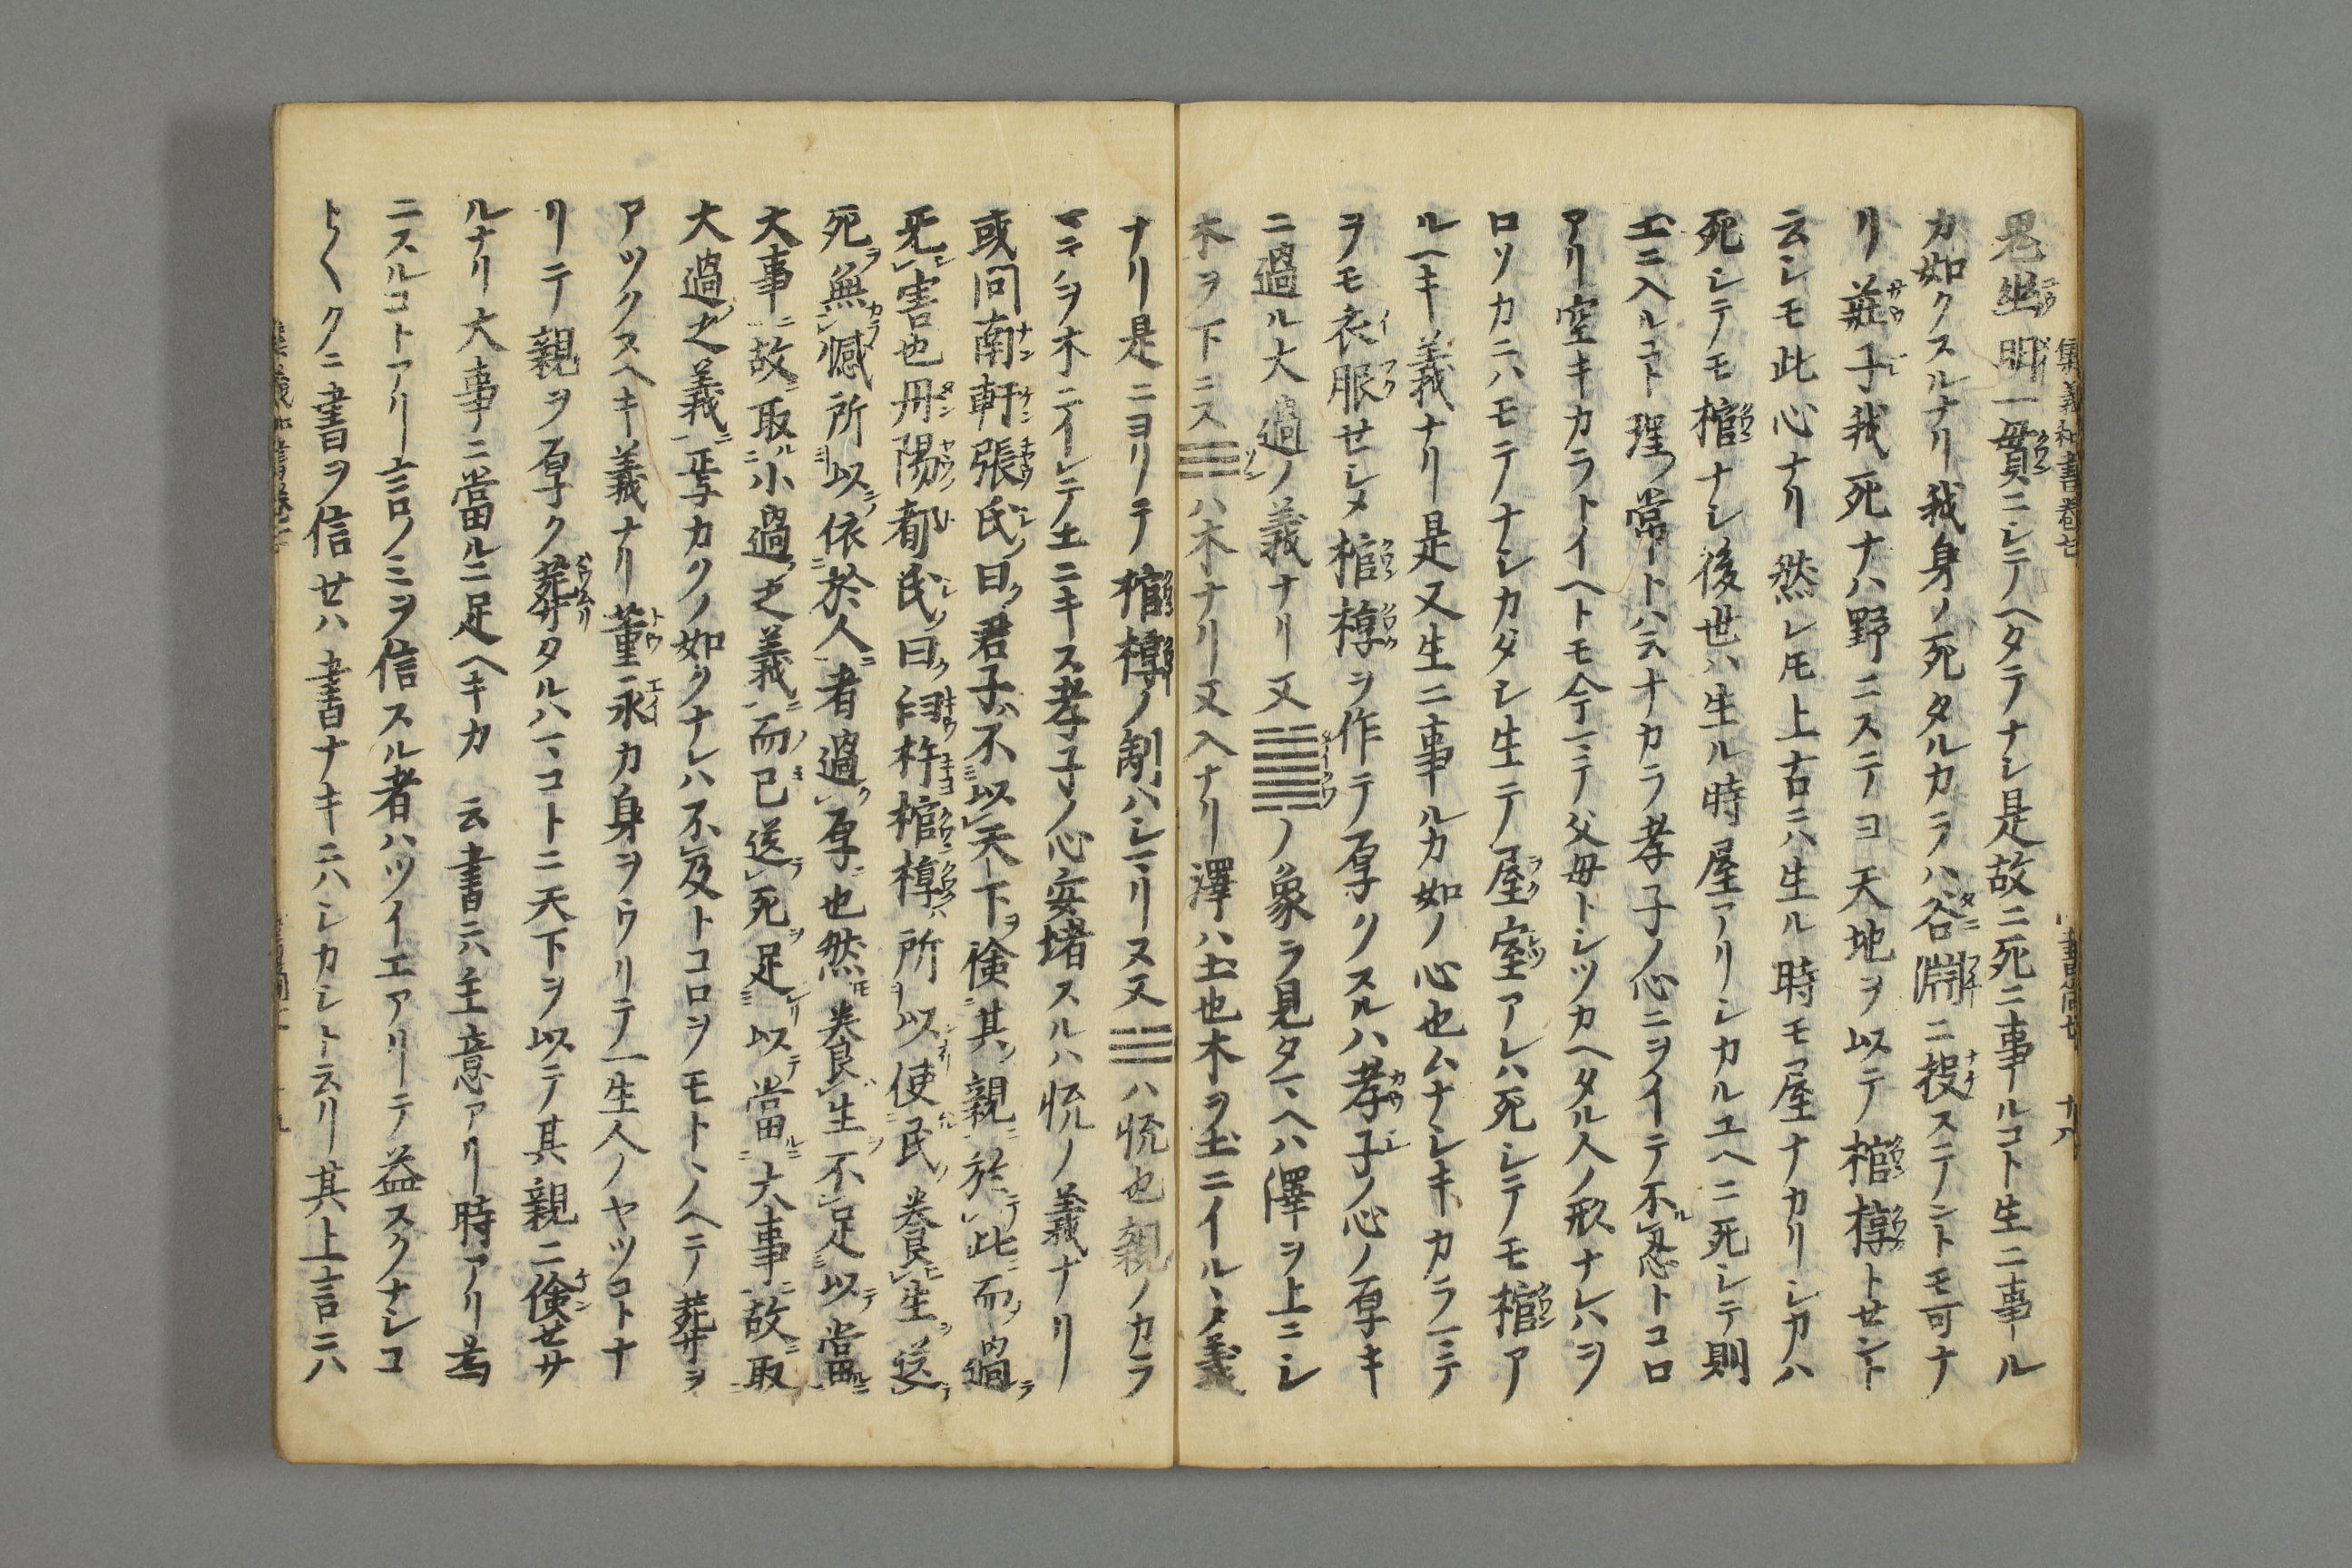 集義和書巻廿
書簡廿
十八
見幽明一貫ニシテヘタテナシ是故ニ死ニ事ールコト生ニ事ール
カ如クスルナリ我身ノ死タルカラハ谷淵ニ投ステントモ可ナ
リ荘子我死ナハ野ニステヨ天地ヲ以テ棺椁トセント
云シモ此心ナリ然レモ上古ニハ生ル時モ屋ナカリシカハ
死シテモ棺ナシ後世ハ生ル時屋アリシカルユヘニ死シテ則
土ニ入ルコト理ノ常トハ云ナカラ孝子ノ心ニヲイテ不忍トコロ
アリ空キカラトイヘトモ今マテ父母トシツカヘタル人ノ形ナレハヲ
ロソカニハモテナシカタシ生テ屋室アレハ死シテモ棺ア
ルヘキ義ナリ是又生ニ事ルカ如ノ心也ムナシキカラマテ
ヲモ衣服せシメ棺椁ヲ作テ厚クスルハ孝子ノ心ノ厚キ
ニ過ル大過ノ義ナリ又䷛ノ象ヲ見タマヘハ澤ヲ上ニシ
木ヲ下ニス☴ハ木ナリ又入ナリ澤ハ土也木ヲ土ニイル丶義
ナリ是ニヨリテ棺椁ノ制ハシマリス又☱ハ悦也親ノカラ
マテヲ木ニイレテ土ニキス孝子ノ心安堵スルハ悦ノ義ナリ
或問南軒張氏曰君子不以天下倹其親於此而過
死害也丹陽都氏曰臼杵棺椁所以使民養生送
死無憾所以依於人者過厚也然養生不足以當
大事故取小過之義而已送死足以當大事故取
大過之義𪜈カクノ如クナレハ不及トコロヲモト丶ノヘテ葬ヲ
アツクスヘキ義ナリ董永カ身ヲウリテ一生人ノヤツコトナ
リテ親ヲ厚ク葬タルハマコトニ天下ヲ以テ其親ニ倹せサ
ルナリ大事ニ當ルニ足ヘキカ 云書ニハ主意アリ時アリ為
ニスルコトアリ言ノミヲ信スル者ハツイエアリテ益スクナシコ
ト〱クニ書ヲ信せハ書ナキニハシカシト云リ其上言ニハ